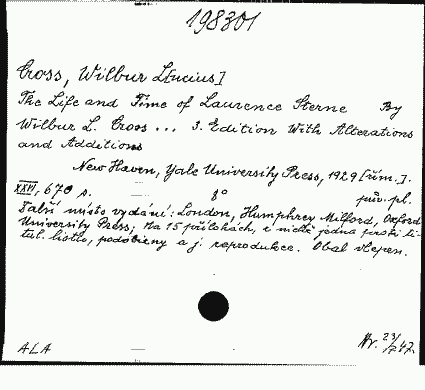 198301
Cross, Wilbur L[ucius]
The Life and Time of Laurence Sterne By
Wilbur L. Cross ... 3. Edition With Alterations
and Additions
New Haven, Yale University Press, 1929 [řím.].
XXVI, 670 s. 8° pův. pl.
Další místo vydání: London, Humphrey Milford, Oxford
University Press; Na 15 přílohách, z nichž jedna proti ti-
tul. listu, podobizny a j. reprodukce. Obal vlepen.
ALA Nr. 23/ 47.